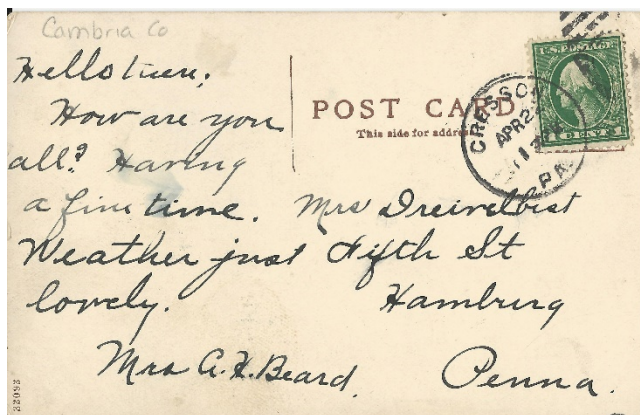 Cambria Co
Hello
How are you
all? Having
a fine time.
Weather just
lovely.
Mrs A. H. Beard.
POST CARD
This side for address
U.S. POSTAGE
CENT
CRESSON
APR 2
PA.
Mrs Dreivelbist
Fifth St
Hamburg
Penna.
22092